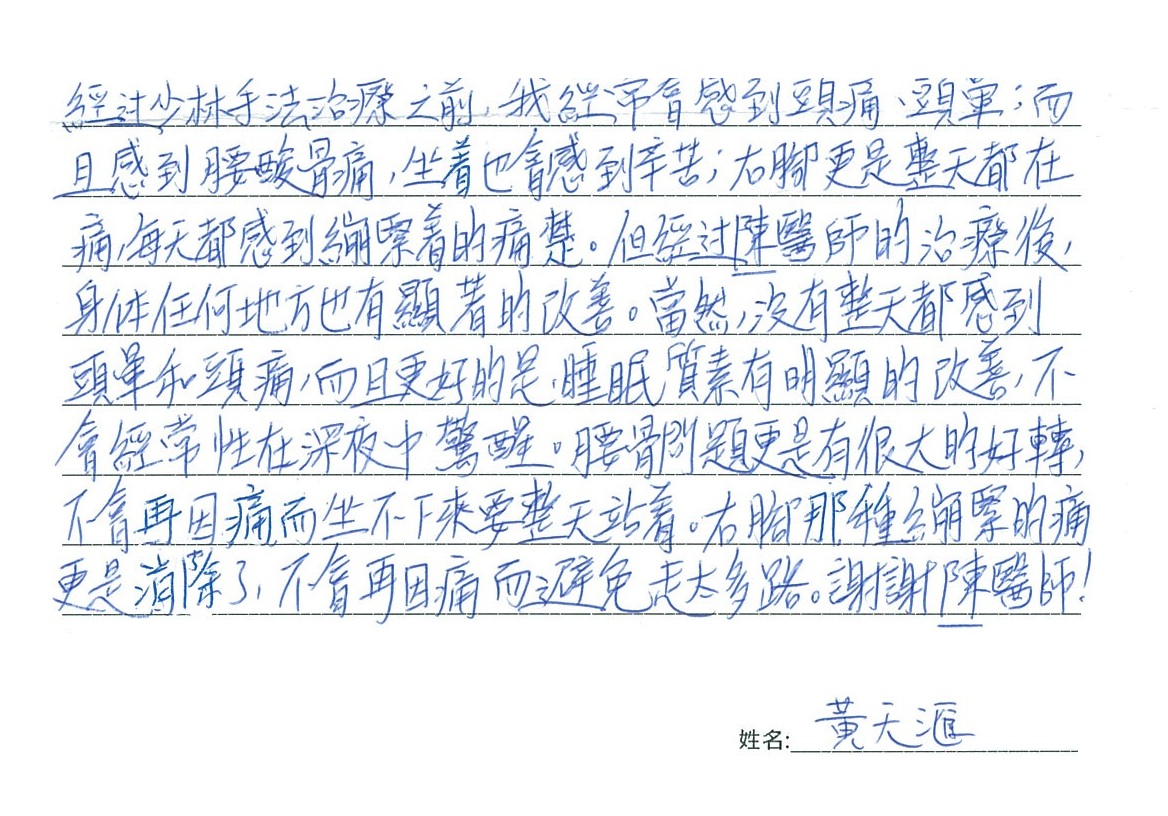 經过少林手法治療之前,我經常會感到頭痛、頭暈;而
且感到腰酸骨痛,坐着也會感到辛苦;右腳更是整天都在
痛,每天都感到繃緊着的痛楚。但經过陳醫師的治療後,
身体任何地方也有顯著的改善。當然,沒有整天都感到
頭暈和頭痛,而且更好的是,睡眠質素有明顯的改善,不
會經常性在深夜中驚醒。腰骨問題更是有很大的好轉,
不會再因痛而坐不下來要整天站着。右腳那種繃緊的痛
更是消除了,不會再因痛而避免走太多路。謝謝陳醫師!
姓名:黃天滙